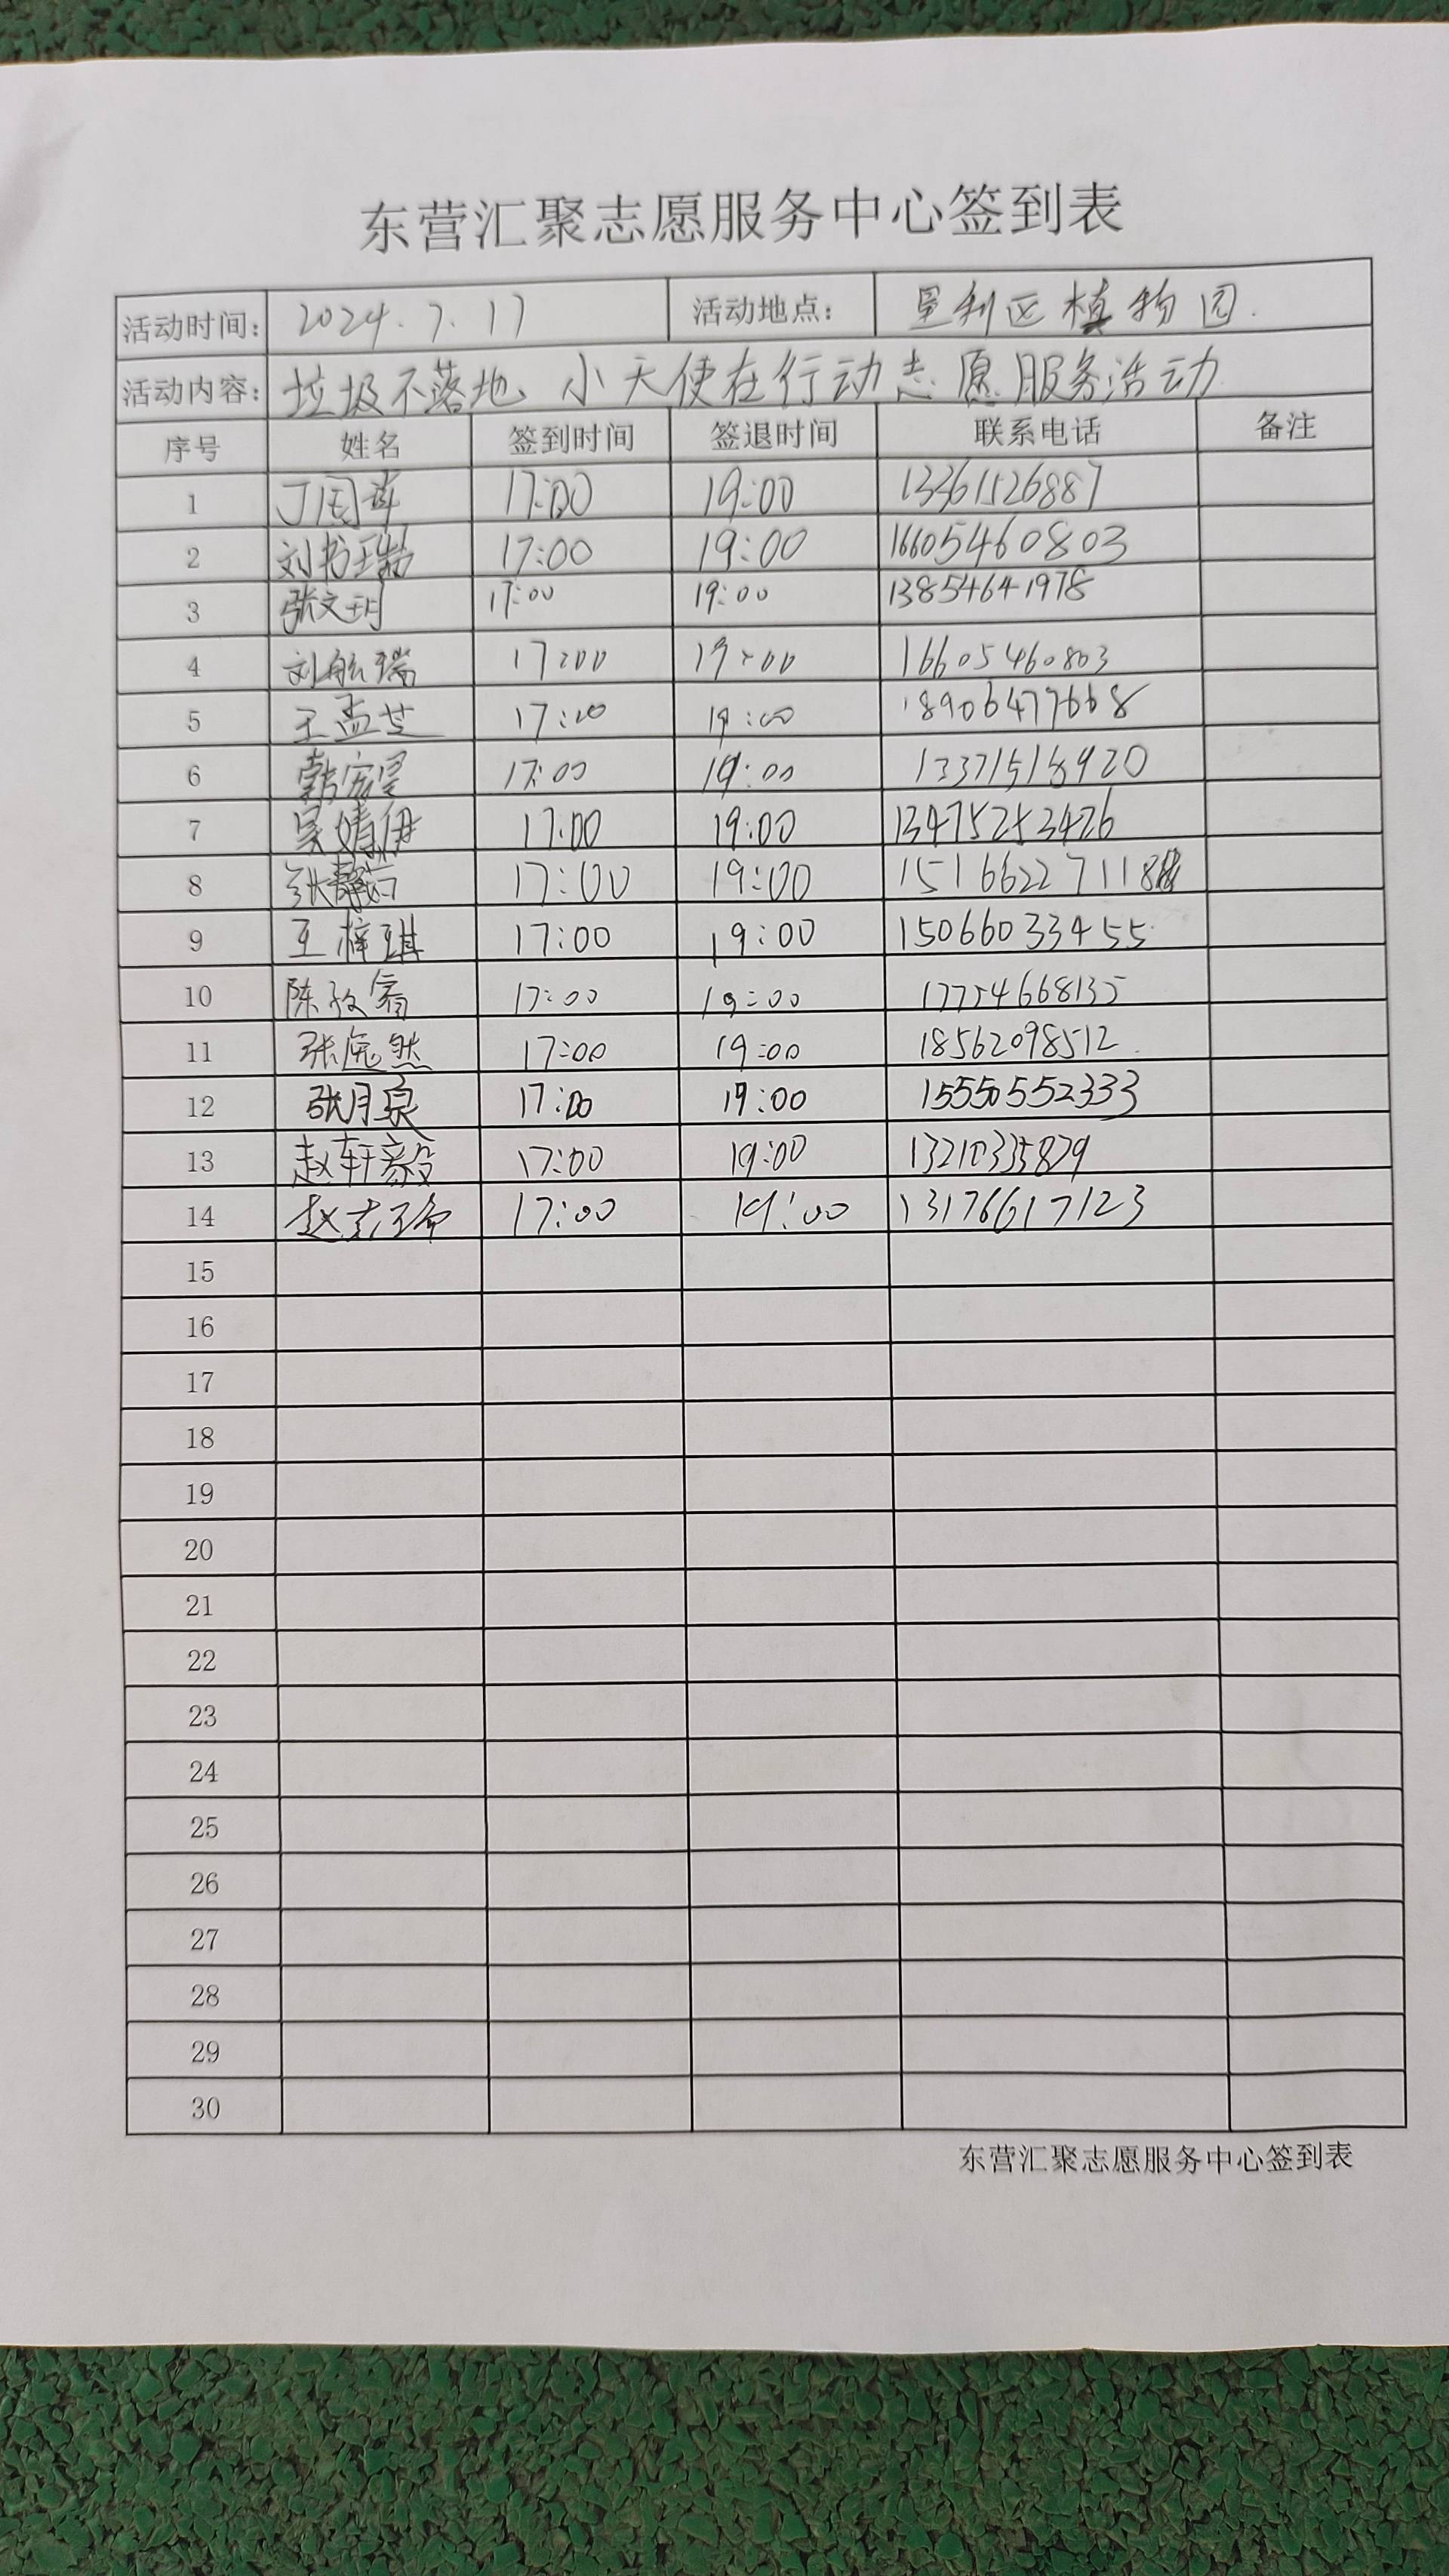 东营汇聚志愿服务中心签到表
活动时间: 2024.7.17 活动地点: 垦利区植物园.
活动内容: 垃圾不落地 小天使在行动志愿服务活动
序号 姓名 签到时间 签退时间 联系电话 备注
1 17:00 19:00 13361526887
2 17:00 19:00 16605460803
3 张文玥 17:00 19:00 13854641978
4 刘航瑞 17:00 19:00 16605460803
5 王孟芝 17:00 19:00 18906477668
6 韩宏昊 17:00 19:00 13371518920
7 吴婧伊 17:00 19:00 13475253426
8 17:00 19:00 15166227118
9 王梓琪 17:00 19:00 15066033455
10 17:00 19:00 17754668135
11 17:00 19:00 18562098512
12 张月泉 17:00 19:00 15550552333
13 赵轩毅 17:00 19:00 13210335829
14 17:00 19:00 13176617123
15
16
17
18
19
20
21
22
23
24
25
26
27
28
29
30
东营汇聚志愿服务中心签到表